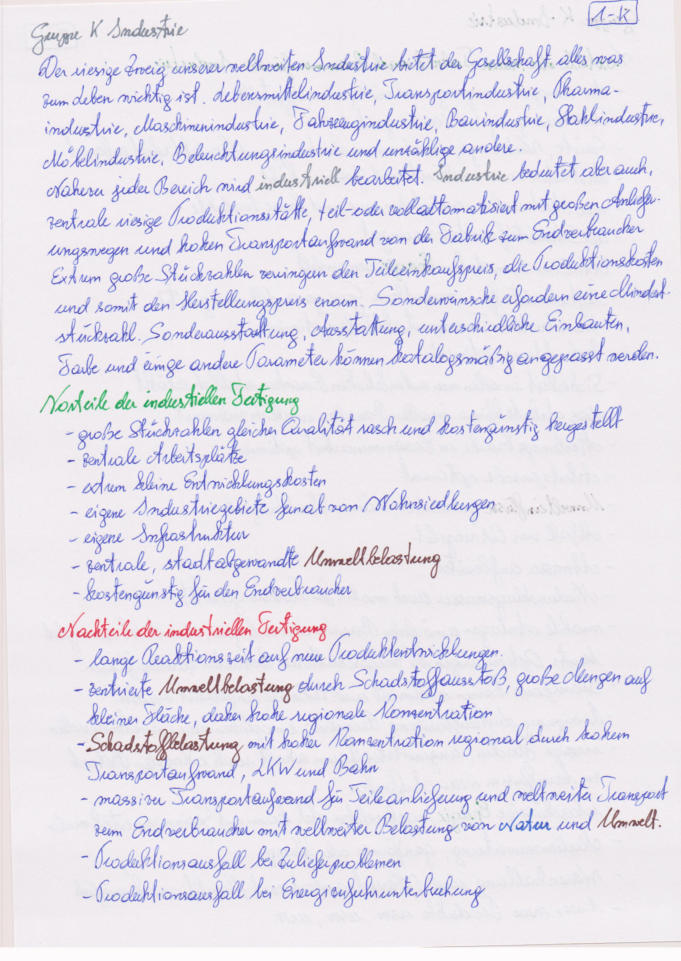 1-K
Gruppe K Industrie
Der riesige Zweig unserer weltweiten Industrie bietet der Gesellschaft alles was
zum Leben wichtig ist. Lebensmittelindustrie, Transportindustrie, Pharma-
industrie, Maschinenindustrie, Fahrzeugindustrie, Bauindustrie, Stahlindustrie,
Möbelindustrie, Beleuchtungsindustrie und unzählige andere.
Nahezu jeder Bereich wird industriell bearbeitet. Industrie bedeutet aber auch,
zentrale riesige Produktionsstätte, teil- oder vollautomatisiert mit großen Anliefer-
ungswegen und hohen Transportaufwand von der Fabrik zum Endverbraucher
Extrem große Stückzahlen verringern den Teileeinkaufspreis, die Produktionskosten
und somit den Herstellungspreis enorm. Sonderwünsche erfordern eine Mindest-
stückzahl. Sonderausstattung, Ausstattung, unterschiedliche Einbauten,
Farbe und einige andere Parameter können katalogsmäßig angepasst werden.
Vorteile der industriellen Fertigung
- große Stückzahlen gleicher Qualität rasch und kostengünstig hergestellt
- zentrale Arbeitsplätze
- extrem kleine Entwicklungskosten
- eigene Industriegebiete fernab von Wohnsiedlungen
- eigene Infrastruktur
- zentrale, stadtabgewandte Umweltbelastung
- kostengünstig für den Endverbraucher
Nachteile der industriellen Fertigung
- lange Reaktionszeit auf neue Produktentwicklungen.
- zentrierte Umweltbelastung durch Schadstoffausstoß, große Mengen auf
kleiner Fläche, daher hohe regionale Konzentration
- Schadstoffbelastung mit hoher Konzentration regional durch hohem
Transportaufwand, LKW und Bahn
- massiver Transportaufwand für Teileanlieferung und weltweiter Transport
zum Endverbraucher mit weltweiter Belastung von Natur und Umwelt.
- Produktionsausfall bei Zulieferproblemen
- Produktionsausfall bei Energiezufuhrunterbrechung